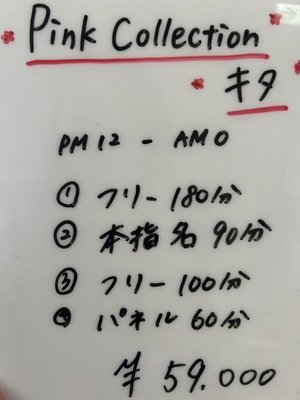 Pink Collection
キタ
PM 12 - AM 0
① フリー 180分
② 本指名 90分
③ フリー 100分
④ パネル 60分
¥ 59.000